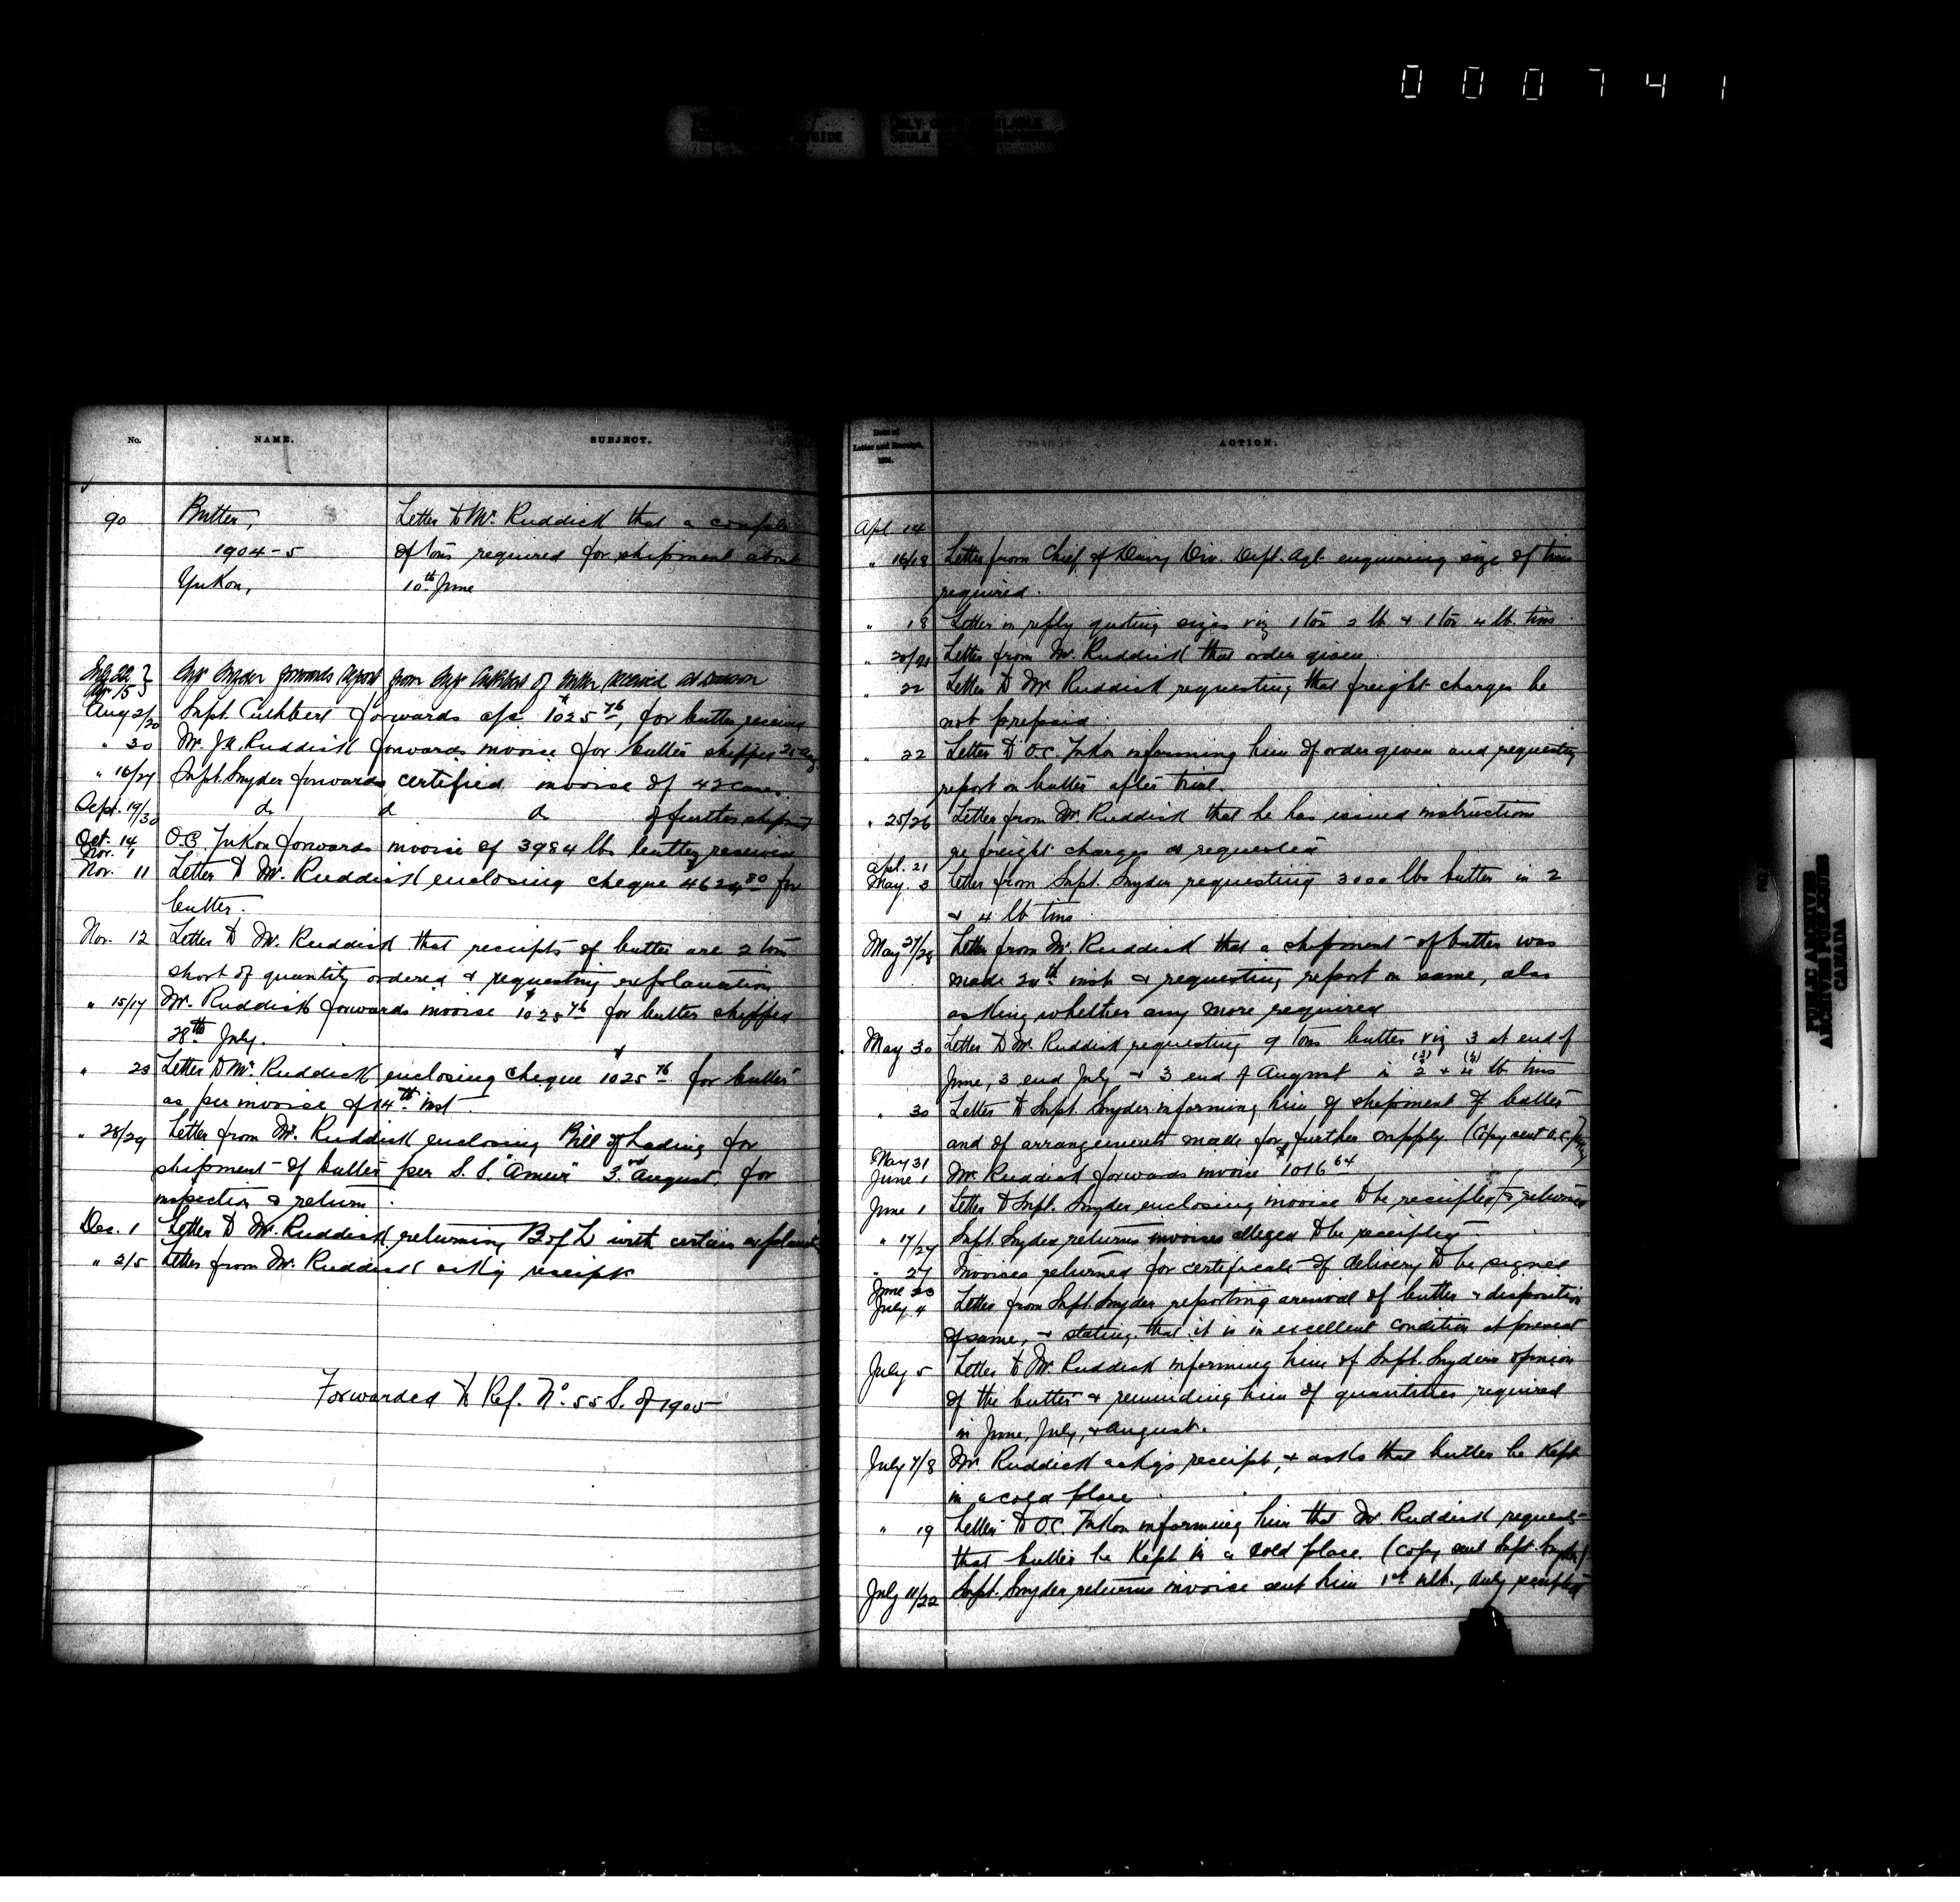 000741
No.
NAME.
SUBJECT.
90
Butter,
Letter to Mr. Ruddick that a couple
1904-5
of tons required for shipment about
Yukon,
10th June
Supt Snyder forwards report from Supt Cuthbert of butter received at Dawson
Aug 2/20 Supt. Cuthbert forwards a/c $1025 76, for butter received
" 30 Mr. J.A. Ruddick forwards invoice for butter shipped
" 16/27 Supt. Snyder forwards certified invoice of 42 cases.
Sept. 19/30 do do do of further shipment
Oct. 14
Nov. 1
O.C. Yukon forwards invoice of 3984 lbs butter received
Nov. 11 Letter to Mr. Ruddick enclosing cheque $4624 80 for
butter.
Nov. 12 Letter to Mr. Ruddick that receipts of butter are 2 tons
short of quantity ordered & requesting explanation
" 15/17 Mr. Ruddick forwards invoice $1025 76 for butter shipped
28th July.
" 23 Letter to Mr. Ruddick enclosing cheque $1025 76 for butter
as per invoice of 14th inst.
" 28/29 Letter from Mr. Ruddick enclosing Bill of Lading for
shipment of butter per S.S. "Amur" 3rd August. for
inspection & return.
Dec. 1 Letter to Mr. Ruddick returning B of L with certain
" 2/5 Letter from Mr. Ruddick ack'g receipt
Forwarded to Ref. No. 55 S. of 1905
Date of
Letter and Receipt,
ACTION.
Apl. 14
" 16/18 Letter from Chief of Dairy Div. Dept. Agl. enquiring size of tins
required.
" 18 Letter in reply quoting sizes viz 1 ton 2 lb & 1 ton 4 lb. tins
" 20/21 Letter from Mr. Ruddick that order given.
" 22 Letter to Mr Ruddick requesting that freight charges be
not prepaid.
" 22 Letter to O.C. Yukon informing him of order given and requesting
report on butter after trial.
" 25/26 Letter from Mr. Ruddick that he has issued instructions
re freight charges as requested
Apl. 21
May. 3
Letter from Supt. Snyder requesting 3000 lbs butter in 2
& 4 lb tins
May 27/28 Letter from Mr Ruddick that a shipment of butter was
made inst & requesting report on same, also
asking whether any more required
May 30 Letter to Mr. Ruddick requesting 9 tons butter viz 3 at end of
June, 3 end July & 3 end of August in 2 & 4 lb tins
" 30 Letter to Supt. Snyder informing him of shipment of butter
and of arrangements made for further supply. (Copy sent O.C.
May 31
June 1
Mr Ruddick forwards invoice $1016 64
June 1 Letter to Supt. Snyder enclosing invoice to be receipted & returned
" 17/27 Supt. Snyder returns invoices alleged to be receipted
" 27 Invoices returned for certificate of delivery to be signed
June 23
July 4
Letter from Supt. Snyder reporting arrival of butter & disposition
of same, & stating that it is in excellent condition at present
July 5 Letter to Mr. Ruddick informing him of Supt. Snyders opinion
of the butter & reminding him of quantities required
in June, July, & August.
July 7/8 Mr Ruddick ack'gs receipt, & asks that butter be kept
in a cold place
" 19 Letter to O.C. Yukon informing him that Mr Ruddick requests
that butter be kept in a cold place. (Copy sent Supt. Snyder)
July 11/22 Supt. Snyder returns invoice sent him 1st ult., duly receipted
PUBLIC ARCHIVES
ARCHIVES PUBLIQUES
CANADA